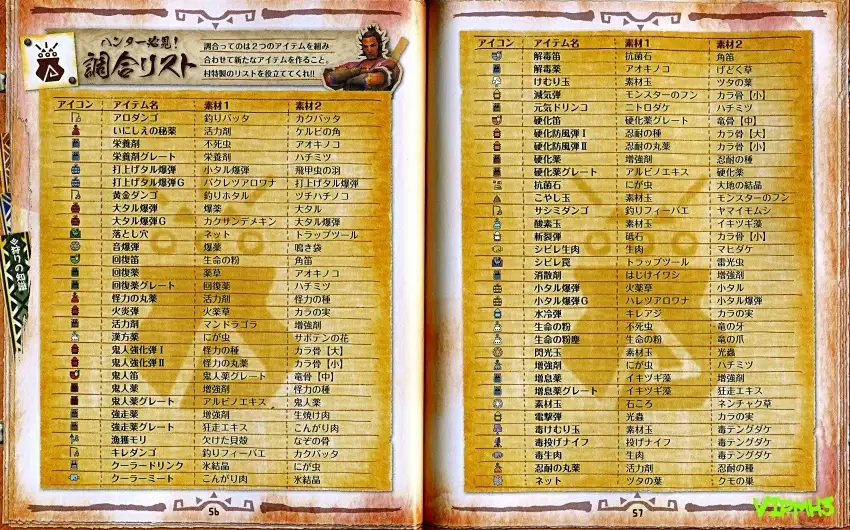 ハンター必見!
調合リスト
調合ってのは2つのアイテムを組み
合わせて新たなアイテムを作ること。
村特製のリストを役立ててくれ!!
アイコン アイテム名 素材1 素材2
アロワナダンゴ 釣りバッタ カクバッタ
いにしえの秘薬 活力剤 ケルビの角
栄養剤 不死虫 アオキノコ
栄養剤グレート 栄養剤 ハチミツ
打上げタル爆弾 小タル爆弾 飛甲虫の羽
打上げタル爆弾G バクレツアロワナ 打上げタル爆弾
黄金ダンゴ 釣りホタル ツチハチノコ
大タル爆弾 爆薬 大タル
大タル爆弾G カクサンデメキン 大タル爆弾
落とし穴 ネット トラップツール
音爆弾 爆薬 鳴き袋
回復笛 生命の粉 角笛
回復薬 薬草 アオキノコ
回復薬グレート 回復薬 ハチミツ
怪力の丸薬 活力剤 怪力の種
火炎弾 火薬草 カラの実
活力剤 マンドラゴラ 増強剤
漢方薬 にが虫 サボテンの花
鬼人強化弾Ⅰ 怪力の種 カラ骨【大】
鬼人強化弾Ⅱ 怪力の丸薬 カラ骨【小】
鬼人笛 鬼人薬グレート 竜骨【中】
鬼人薬 増強剤 怪力の種
鬼人薬グレート アルビノエキス 鬼人薬
強走薬 増強剤 生焼け肉
強走薬グレート 狂走エキス こんがり肉
漁獲モリ 欠けた貝殻 なぞの骨
キレダンゴ 釣りフィーバエ カクバッタ
クーラードリンク 氷結晶 にが虫
クーラーミート こんがり肉 氷結晶
56
狩りの知識
アイコン アイテム名 素材1 素材2
解毒笛 抗菌石 角笛
解毒薬 アオキノコ げどく草
けむり玉 素材玉 ツタの葉
減気弾 モンスターのフン カラ骨【小】
元気ドリンコ ニトロダケ ハチミツ
硬化笛 硬化薬グレート 竜骨【中】
硬化防風弾Ⅰ 忍耐の種 カラ骨【大】
硬化防風弾Ⅱ 忍耐の丸薬 カラ骨【小】
硬化薬 増強剤 忍耐の種
硬化薬グレート アルビノエキス 硬化薬
抗菌石 にが虫 大地の結晶
こやし玉 素材玉 モンスターのフン
サシミダンゴ 釣りフィーバエ ヤマイモムシ
酸素玉 素材玉 イキツギ藻
斬裂弾 砥石 カラ骨【小】
シビレ生肉 生肉 マヒダケ
シビレ罠 トラップツール 雷光虫
消散剤 はじけイワシ 増強剤
小タル爆弾 火薬草 小タル
小タル爆弾G ハレツアロワナ 小タル爆弾
水冷弾 キレアジ カラの実
生命の粉 不死虫 竜の牙
生命の粉塵 生命の粉 竜の爪
閃光玉 素材玉 光蟲
増強剤 にが虫 ハチミツ
増息薬 イキツギ藻 増強剤
増息薬グレート イキツギ藻 狂走エキス
素材玉 石ころ ネンチャク草
電撃弾 光蟲 カラの実
毒けむり玉 素材玉 毒テングダケ
毒投げナイフ 投げナイフ 毒テングダケ
毒生肉 生肉 毒テングダケ
忍耐の丸薬 活力剤 忍耐の種
ネット ツタの葉 クモの巣
57
VIPMH3